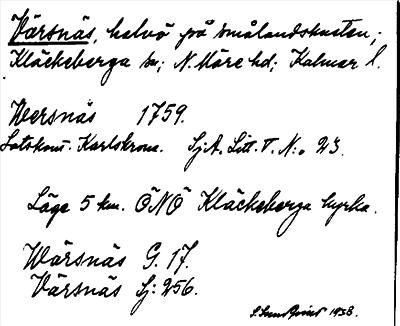 Värsnäs, halvö på Smålandskusten;
Kläckeberga sn; N. Möre hd; Kalmar l.
Wersnäs 1759.
Lotskont. Karlskrona. Sj.A. Litt. T. N:o 23.
Läge 5 km. ÖNÖ Kläckeberga kyrka.
Wärsnäs G. 17.
Värsnäs Sj: 256.
S. Sundqvist 1938.